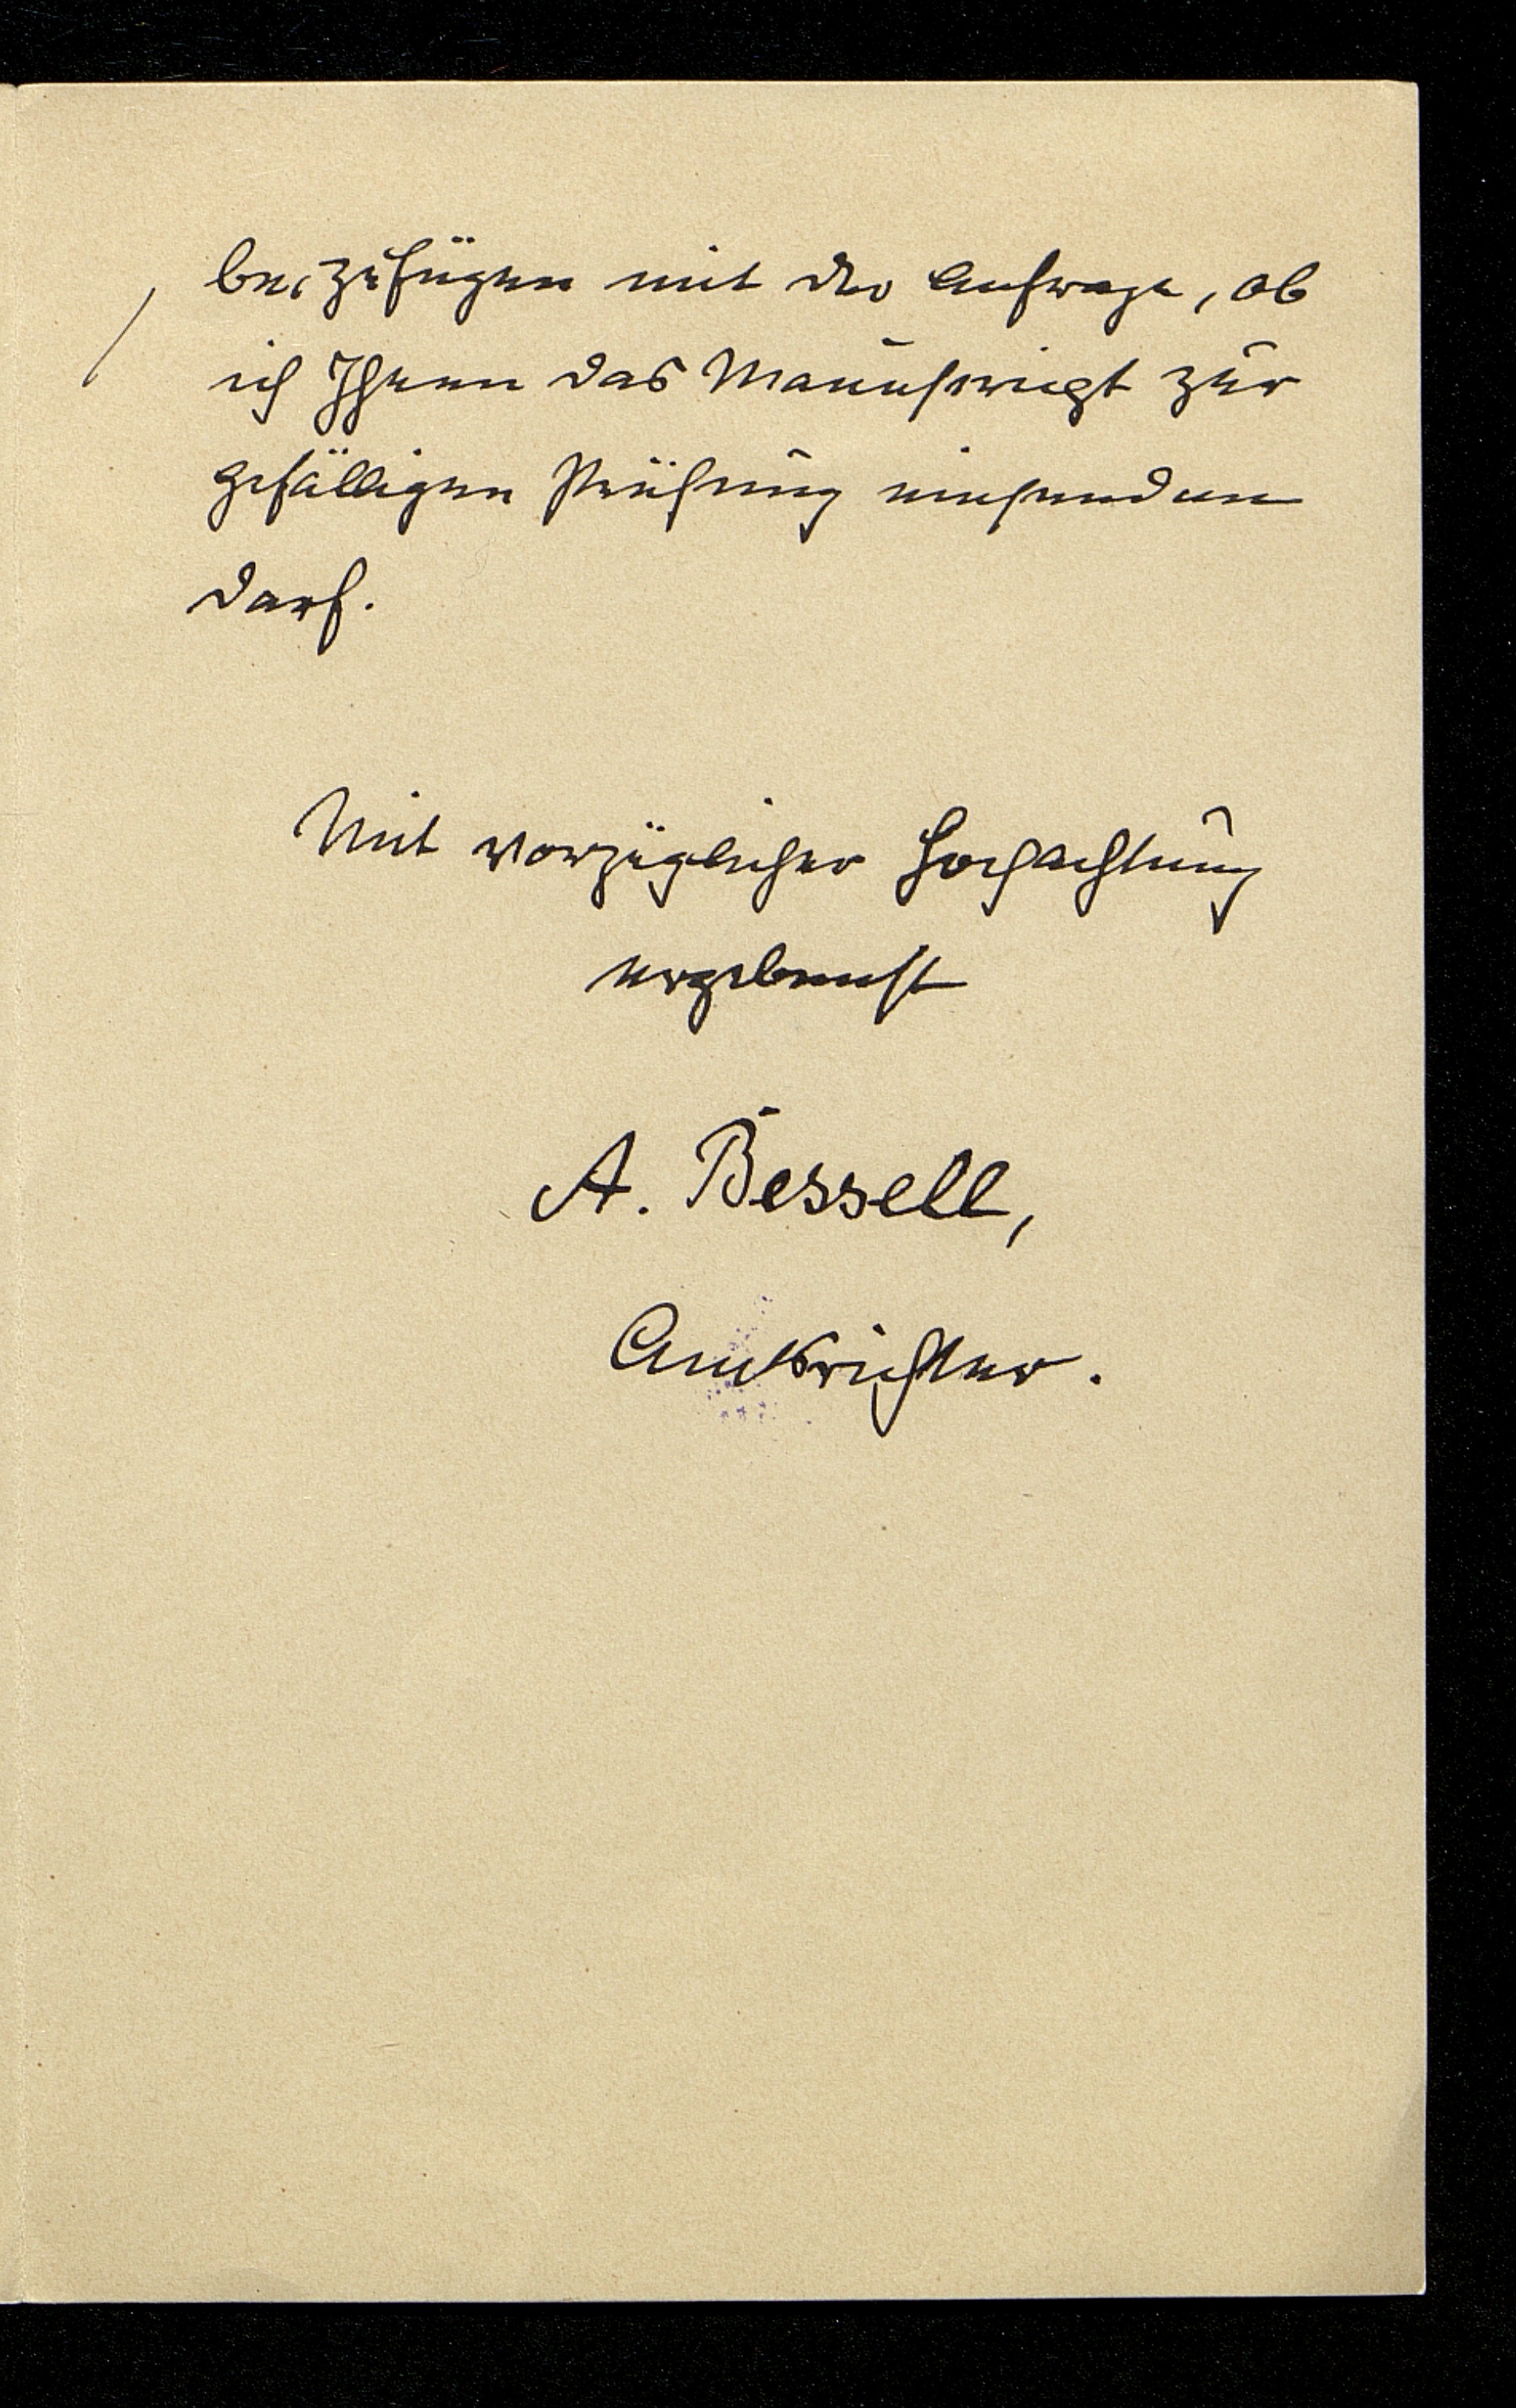 beizufügen mit der Anfrage, ob
ich Ihnen das Manuskript zur
gefälligen Prüfung einsenden
darf.
Mit vorzüglicher Hochachtung
ergebenst
A. Bessell,
Amtsrichter.